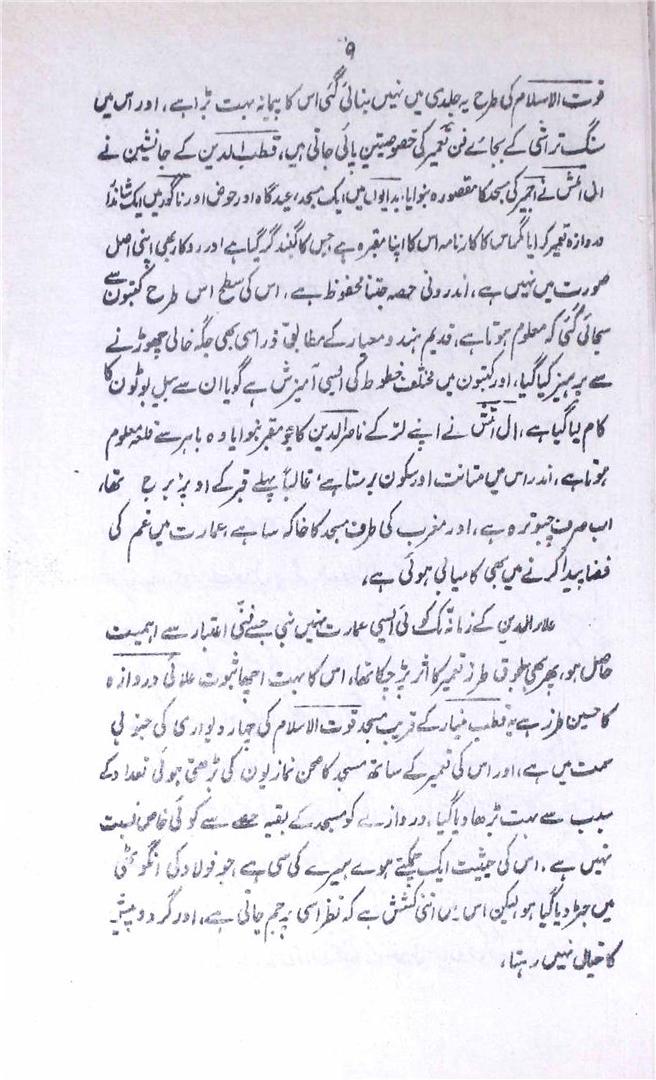 ۹
قوت الاسلام کی طرح یہ جلدی میں نہیں بنائی گئی اس کا پیمانہ بہت بڑا ہے، اور اس میں
سنگ تراشی کے بجائے فن تعمیر کی خصوصیتین پائی جاتی ہیں، قطب الدین کے جانشین نے
ال التمش نے اجمیر کی مسجد کا مقصورہ بنوایا، بدایوں میں ایک مسجد، عیدگاہ اور حوض اور ناگور میں ایک شاندار
دروازہ تعمیر کرایا مگر اس کا کارنامہ اس کا اپنا مقبرہ ہے جس کا گنبد گر گیا ہے اور روکار بھی اپنی اصل
صورت میں نہیں ہے، اندرونی حصہ جتنا محفوظ ہے، اس کی سطح اس طرح کتبون سے
سجائی گئی کہ معلوم ہوتا ہے، قدیم ہندو معیار کے مطابق ذرا سی بھی جگہ خالی چھوڑنے
سے پرہیز کیا گیا، اور کتبون میں مختلف خطوط کی ایسی آمیزش ہے گویا ان سے بیل بوٹون کا
کام لیا گیا ہے، ال التمش نے اپنے لڑکے ناصر الدین کا جو مقبر بنوایا وہ باہر سے قلعہ معلوم
ہوتا ہے، اندر اس میں متانت اور سکون برستا ہے، غالباً پہلے قبر کے اوپر برج تھا،
اب صرف چبوترہ ہے، اور مغرب کی طرف مسجد کا خاکہ سا ہے، عمارت میں غم کی
فضا پیدا کرنے میں بھی کامیابی ہوئی ہے،
علاء الدین کے زمانہ تک کوئی ایسی عمارت نہیں بنی جسے فنی اعتبار سے اہمیت
حاصل ہو، پھر بھی سلجوقی طرز تعمیر کا اثر پڑ چکا تھا، اس کا بہت اچھا ثبوت علائی دروازہ
کا حسین طرز ہے یہ قطب مینار کے قریب مسجد قوت الاسلام کی چہار دیواری کی جنوبی
سمت میں ہے، اور اس کی تعمیر کے ساتھ مسجد کا صحن نمازیون کی بڑھتی ہوئی تعداد کے
سبب سے بہت بڑھا دیا گیا، دروازے کو مسجد کے بقیہ حصے سے کوئی خاص نسبت
نہیں ہے، اس کی حیثیت ایک چمکتے ہوے ہیرے کی سی ہے، جو فولاد کی انگوٹھی
میں جڑ دیا گیا ہو، لیکن اس میں اتنی کشش ہے کہ نظر اسی پر جم جاتی ہے، اور گرد و پیش
کا خیال نہیں رہتا،